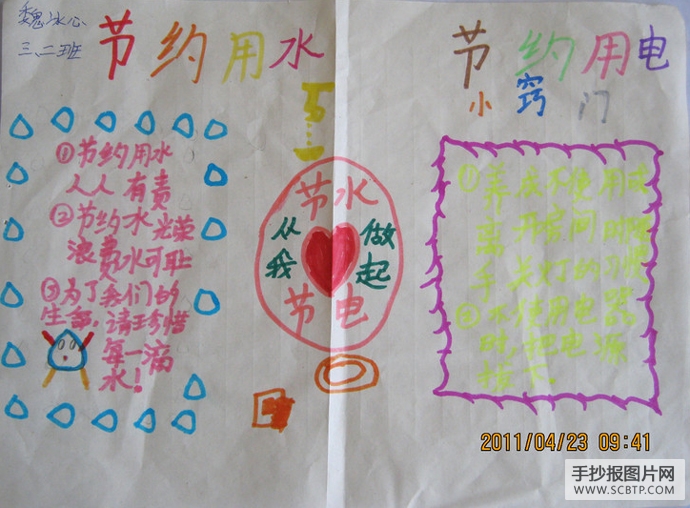 魏冰心
三.二班
节约用水
①节约用水
人人有责
②节约水光荣
浪费水可耻
③为了我们的
生命,请珍惜
每一滴
水!
节水
从我做起
节电
节约用电
小窍门
①养成不使用或
离开房间时
手关灯的习惯
②不使用电器
时,把电源
拔下
2011/04/23 09:41
手抄报图片网
WWW.SCBTP.COM